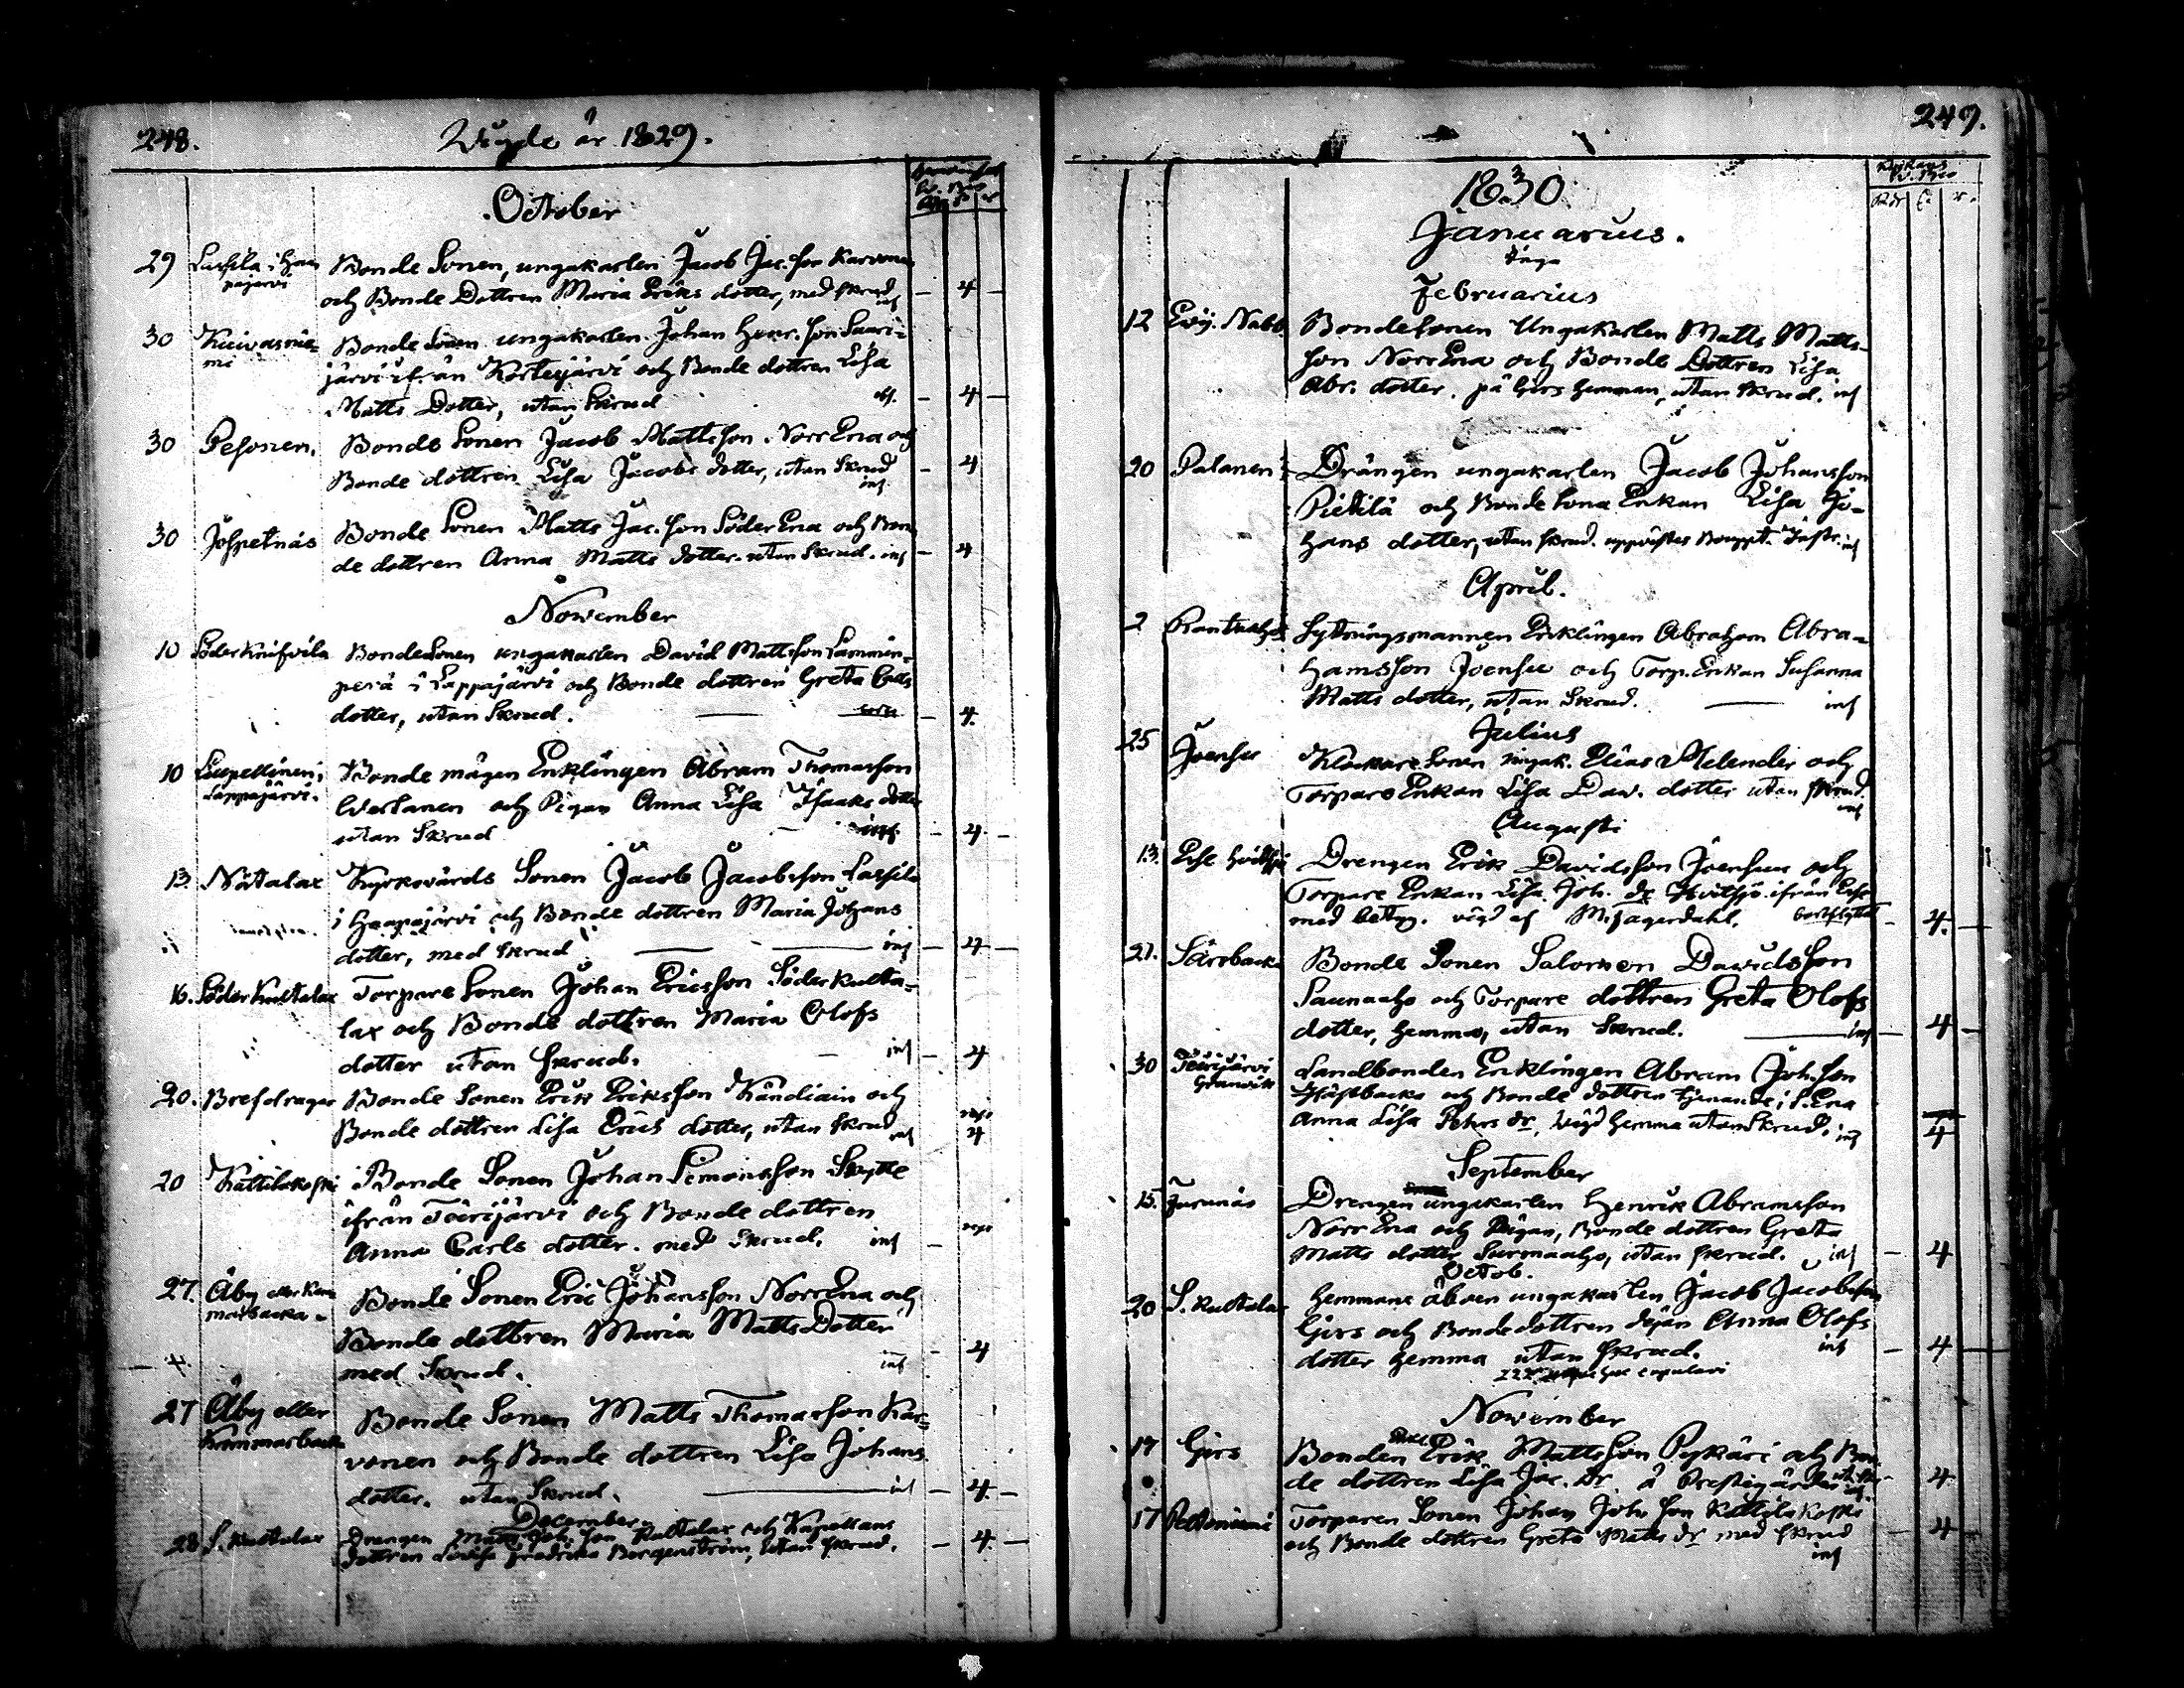 248.
Wigde år 1829.
October
29 Lassila i Haapajärvi Bonde Sonen, ungakarlen Jacob Jac. Son Karvonen
och Bonde Dottren Maria Eriks dotter, med skrud inf – 4 –
30 Kuivasniemi Bonde Sonen ungakarlen Johan Henr. Son Saari-
järvi ifrån Kortesjärvi och Bonde dottren Lisa
Matts Dotter, utan Skrud – 4 –
30 Pesonen. Bonde Sonen Jacob Mattsson Norr Ena och
Bonde dottren Lisa Jacobs dotter, utan Skrud inf – 4
30 Bonde Sonen Matts Jac. Son Söder Ena och Bon-
de dottren Anna Matts dotter. utan Skrud. inf – 4
November
10 Bonde Sonen ungakarlen David Mattsson Lammin-
perä i Lappajärvi och Bonde dottren Greta
dotter, utan Skrud. – 4.
10 Lappajärvi. Bonde mågen Enklingen Abram Thomasson
och Pigan Anna Lisa Isaaks dotter
utan Skrud – 4. –
13. Nätalax Kyrkovärds Sonen Jacob Jacobsson Lassila
i Haapajärvi och Bonde dottren Maria Johans
dotter, med Skrud inf – 4 –
16. Söder Kultalax Torpare Sonen Johan Ericsson Söderkulta-
lax och Bonde dottren Maria Olofs
dotter utan Skrud. inf – 4
20. Brefdragar Bonde Sonen Erik Eriksson Kändiäin och
Bonde dottren Lisa Erics dotter, utan Skrud inf 4
20 Kattilakoski Bonde Sonen Johan Simonsson Skytte
ifrån Teirijärvi och Bonde dottren
Anna Carls dotter. med Skrud. inf –
27. Åby eller Kammarbacka. Bonde Sonen Eric Johansson Norr Ena och
Bonde dottren Maria Matts Dotter
med Skrud. inf – 4
27 Åby eller Kammarbacka Bonde Sonen Matts Thomasson Kar-
vonen och Bonde dottren Lisa Johans
dotter. utan Skrud. inf – 4. –
December
28 S. Kultalax Drengen Matts Joh. Son Kultalax och Kapellans
dottren Lovisa Fredrika Borgenström, utan Skrud. – 4. –
249.
1830
Januarius.
Inga
Februarius
12 Bondesonen Ungakarlen Matts Matts-
son Norr Ena och Bonde Dottren Lisa
Abr. dotter. på Girs hemman, utan Skrud. inf
20 Palanen Drängen ungakarlen Jacob Johansson
Pietilä och Bonde Sona Enkan Lisa Jo-
hans dotter, utan Skrud. inf
April.
2 Sytningsmannen Enklingen Abraham Abra-
hamsson Joensuu och Torp. Enkan Susanna
Matts dotter, utan Skrud. inf
Julius
25 Joensuu Klockare Sonen ungak. Elias Melender och
Torpare Enkan Lisa Dav. dotter utan Skrud. inf
Augusti
13. Drengen Erik Davidsson Joensuu och
Torpare Enkan Lisa Joh. dr ifrån
med betyg. vigd af M. Fagerdahl. bortflyttat – 4. –
21. Bonde Sonen Salomon Davidsson
Saunaaho och Torpare dottren Greta Olofs
dotter, hemma, utan Skrud. inf – 4 –
30 Teirijärvi Granvik Landbonden Enklingen Abram Joh. Son
Häftbacka och Bonde dottren tjenande i S. Ena
Anna Lisa Pehrs dr, vigd hemma utan Skrud. inf 4
September
15. Drengen ungakarlen Henrik Abramsson
Norr Ena och Pigan, Bonde dottren Greta
Matts dotter Surmaaho, utan Skrud. inf – 4
Octob.
20 S. Kultalax Hemmans åboen ungakarlen Jacob Jacobsson
Girs och Bonde dottren Anna Olofs
dotter hemma utan Skrud. inf – 4 –
November
17 Girs Bonden Erik Mattsson Pykäri och Bon-
de dottren Lisa Jac. dr å Prestegården inf – 4.
17 Torparen Sonen Johan Joh. Son Kattilakoski
och Bonde dottren Greta Matts dr med Skrud inf – 4 –